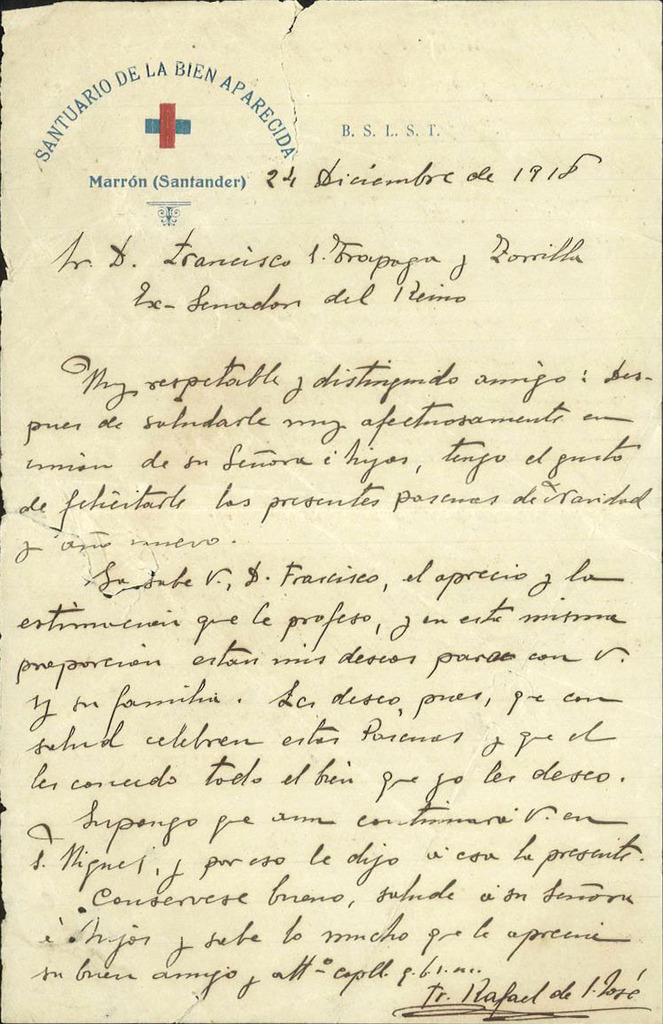 SANTUARIO DE LA BIEN APARECIDA
B. S. L. S. T.
Marrón (Santander) 24 Diciembre de 1918
Sr. D. Francisco S. Trapaga y Zorrilla
Ex-Senador del Reino
Muy respetable y distinguido amigo: Des-
pues de saludarle muy afectuosamente en
union de su Señora é hijos, tengo el gusto
de felicitarle las presentes pascuas de Navidad
y año nuevo.
Ya sabe V., D. Francisco, el aprecio y la
estimacion que le profeso, y en esta misma
proporcion estan mis deseos para con V.
y su familia. Les deseo, pues, que con
salud celebren estas Pascuas y que el
les conceda todo el bien que yo les deseo.
Supongo que aun continuará V. en
S. Miguel, y por eso le dijo á esa la presente.
Conservese bueno, salude á su Señora
é hijos y sabe lo mucho que le aprecia
su buen amigo y attº capll. q. b. s. m.
Fr. Rafael de S. José